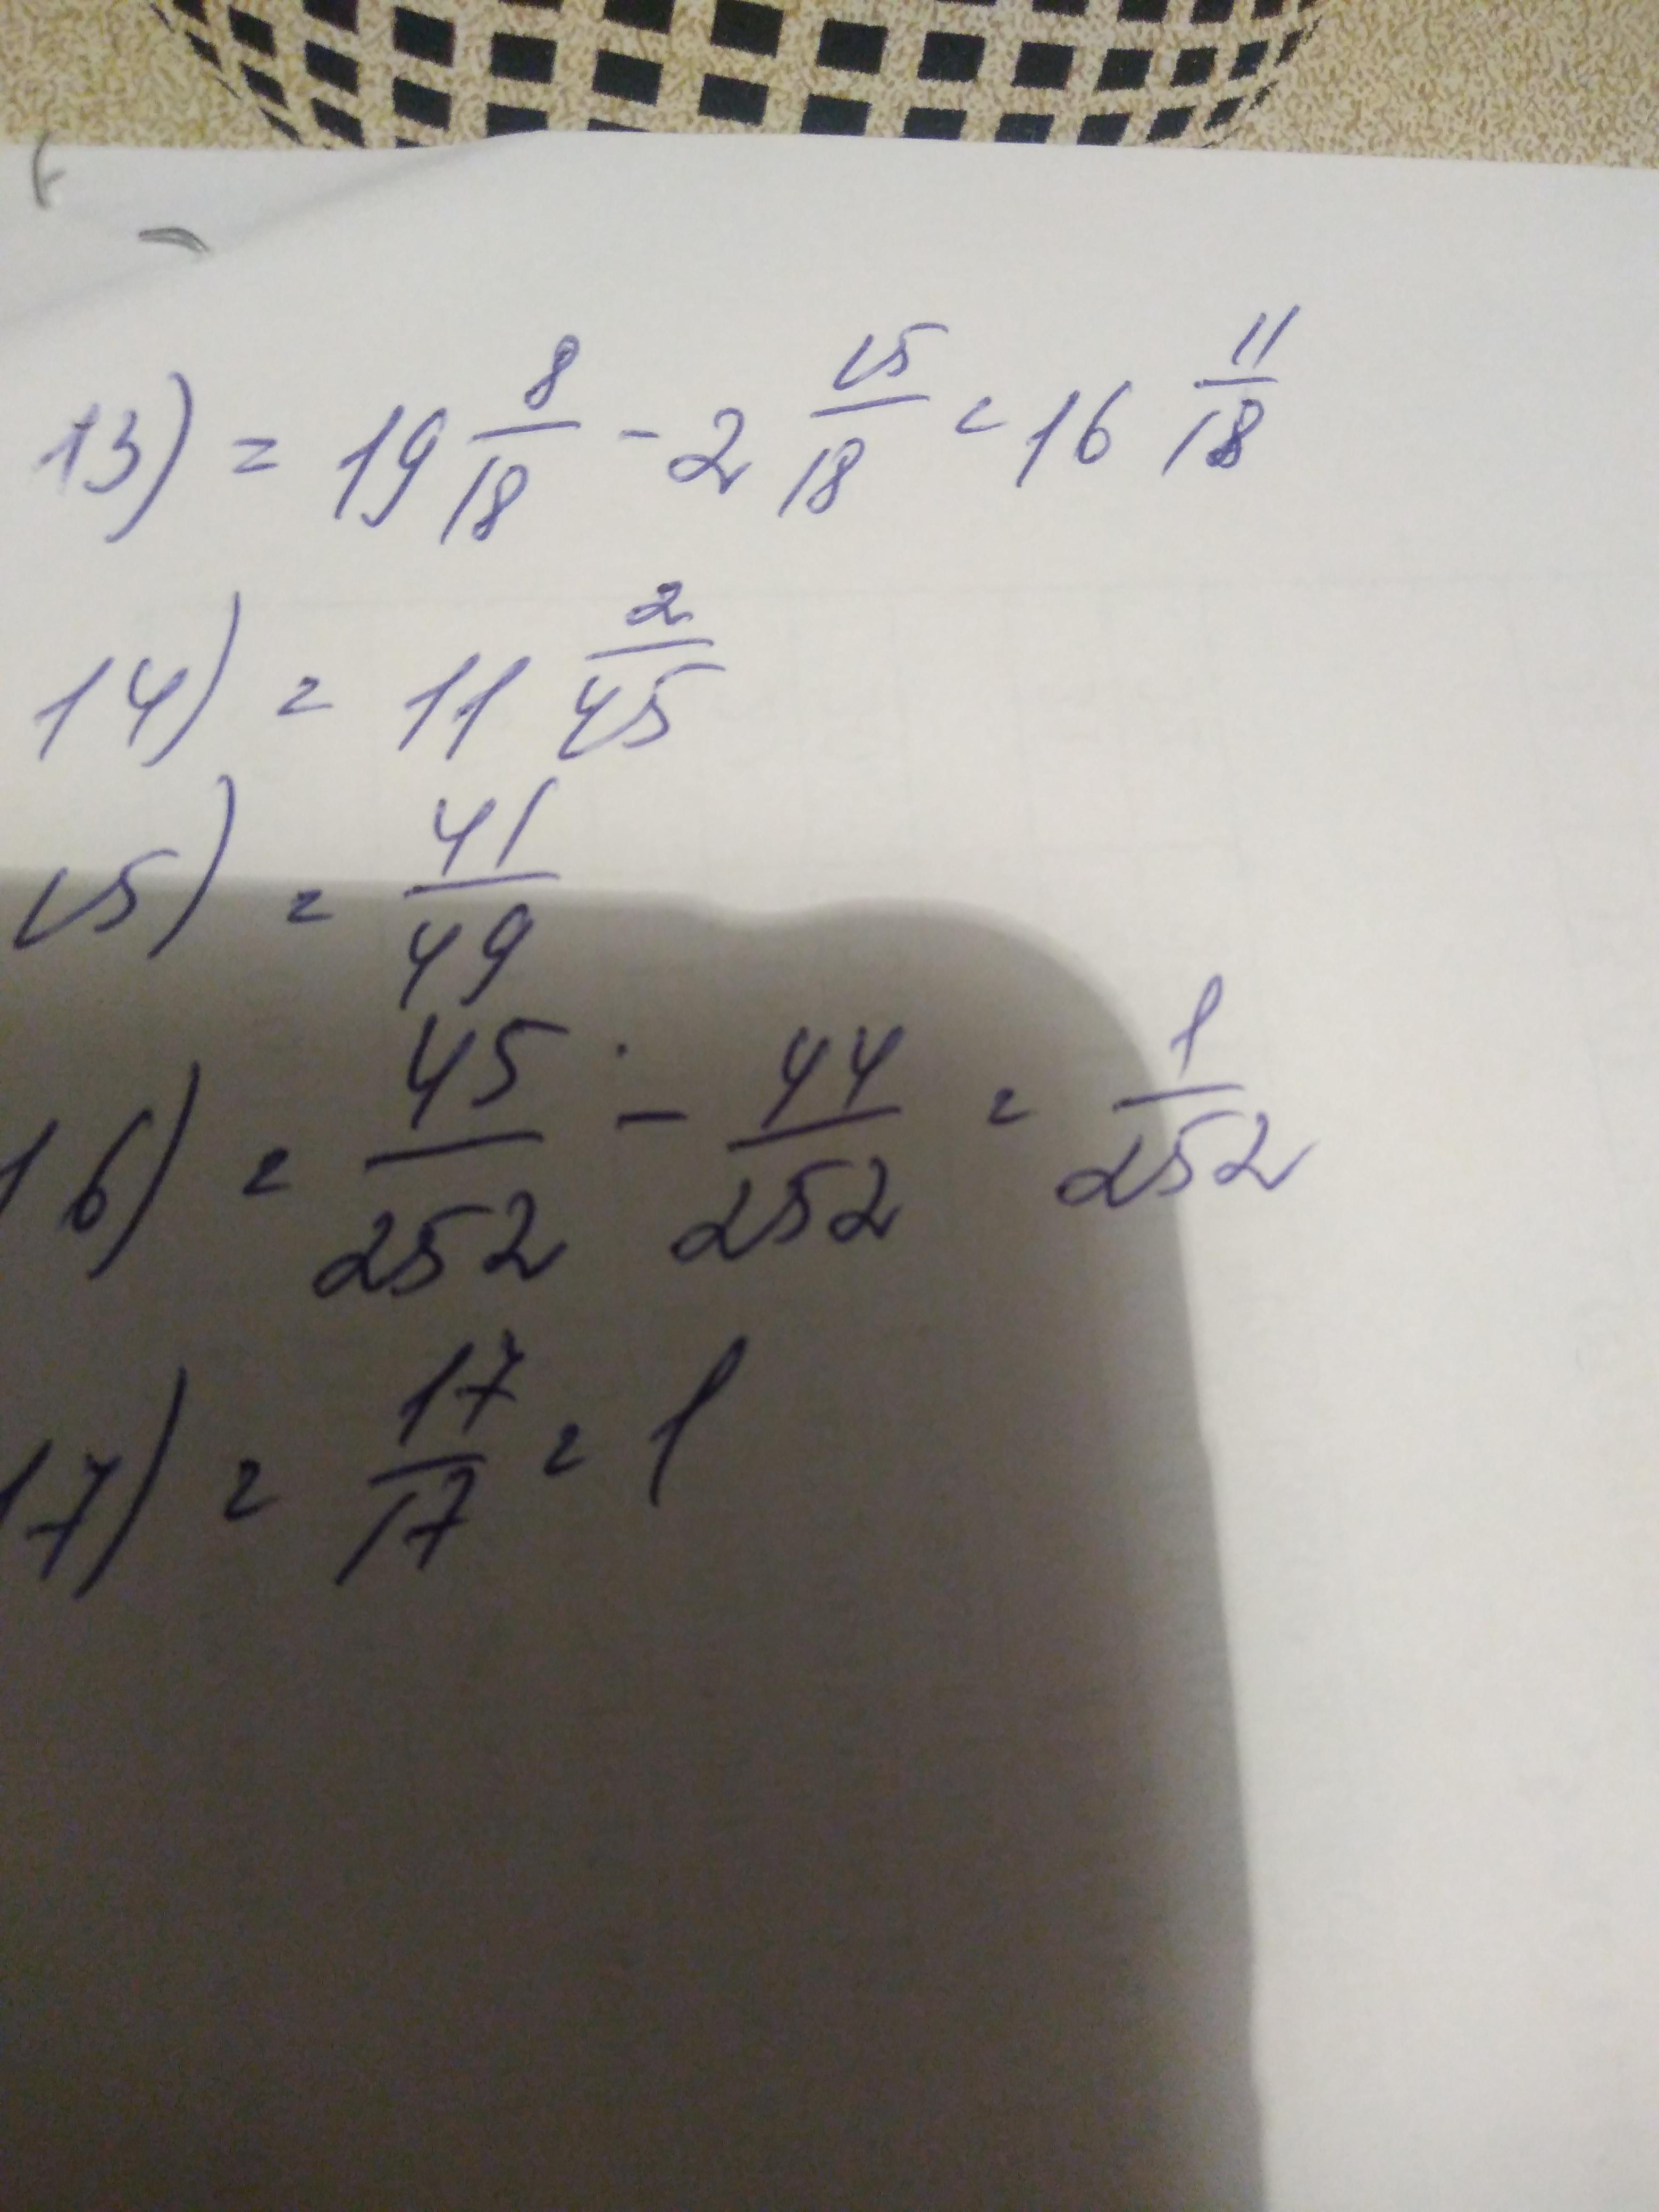 13) = 19 8/18 - 2 15/18 = 16 11/18
14) = 11 2/45
15) = 41/49
16) = 45/252 - 44/252 = 1/252
17) = 17/17 = 1